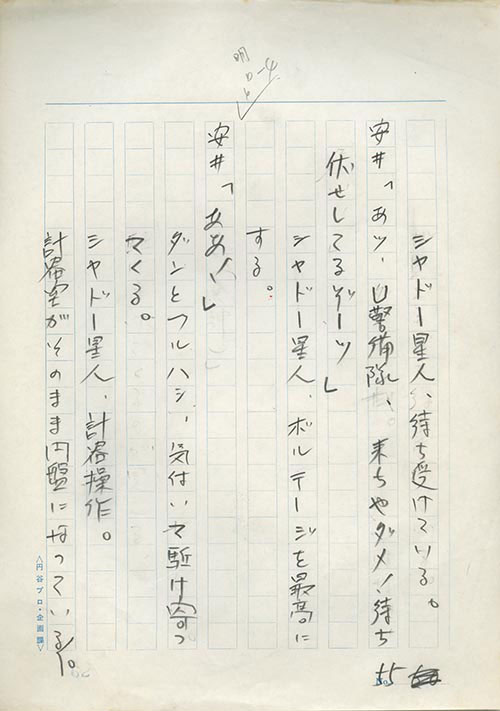 シャドー星人、待ち受けている。
安井「あッ、U警備隊、来ちゃダメ!待ち
伏せしてるぞーッ」
シャドー星人、ボルテージを最高に
する。
安井「ああ!」
ダンとフルハシ、気付いて駈け寄っ
てくる。
シャドー星人、計器操作。
計器室がそのまま円盤になっている。
55
〈円谷プロ・企画課〉